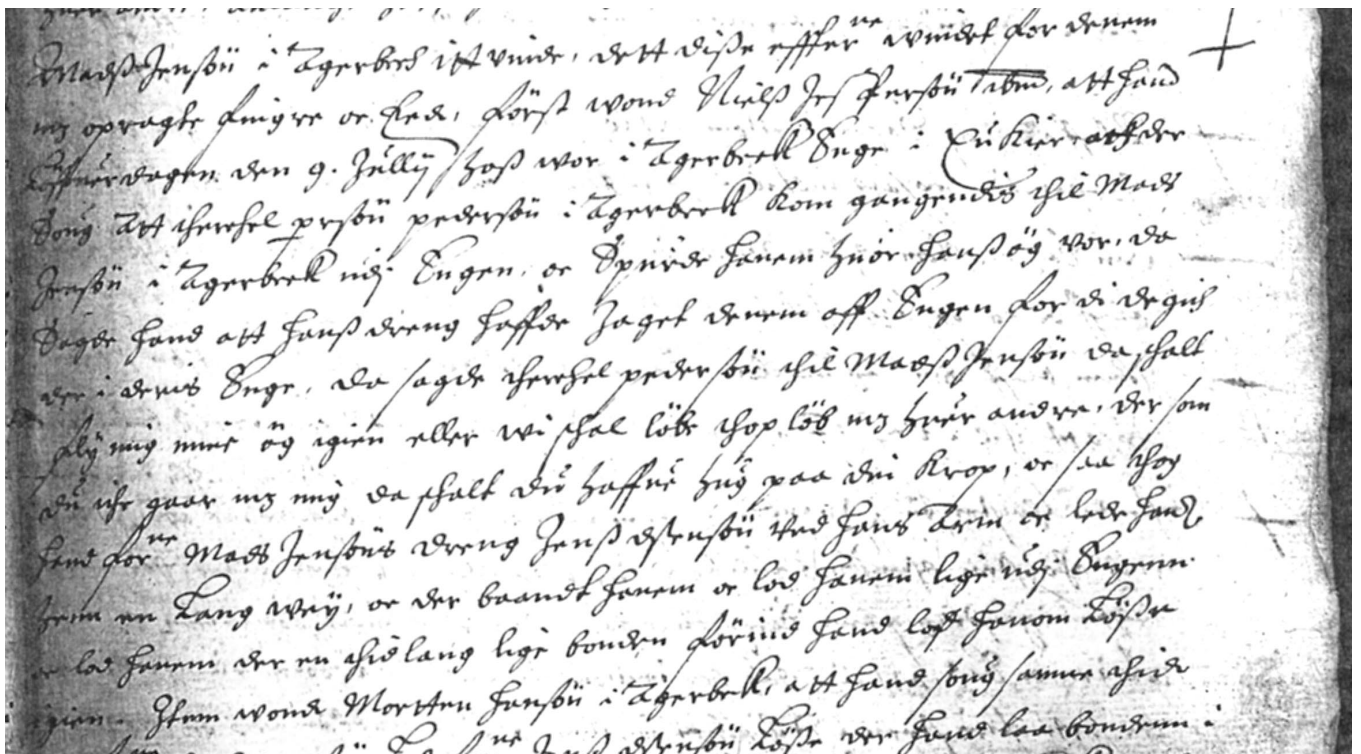 Madß Jensøn i Agerbech itt vinde, dett diße effterne windet for denem
mz opragte fingre oc Eed, først wond Nielß Jespersøn ibm, att hand
Løffuerdagen den 9. Jullij hoß wor i Agerbeck Enge i Kier att der
Soug att therchel persøn pedersøn i Agerbeck kom gangendis thil Mads
Jensøn i Agerbeck udj Engen, oc Spurde hanem huor hanß øg vor, da
Sagde hand att hanß dreng haffde Jaget denem aff Engen for di de gich
der i deris Enge, da sagde therchel pedersøn thil Madß Jensøn da schalt
fly mig mine øg igien eller wi schal løbe thop løb mz huer andre, der som
du iche gaar mz mig da schalt du haffue hug paa din Krop, oc saa thog
hand forne Mads Jensøns dreng Jenß Ostensøn ved hans Arm oc lede hand
henn en Lang wey, oc der baandt hanem oc lod hanem lige udj Engenn
oc lod hanem der en thid lang lige bonden førind hand lod hanom Løße
igien. Item wond Mortten Hansøn i Agerbeck, att hand soug samme thid
ne Jenß Ostensøn Løße der hand laa bondenn i